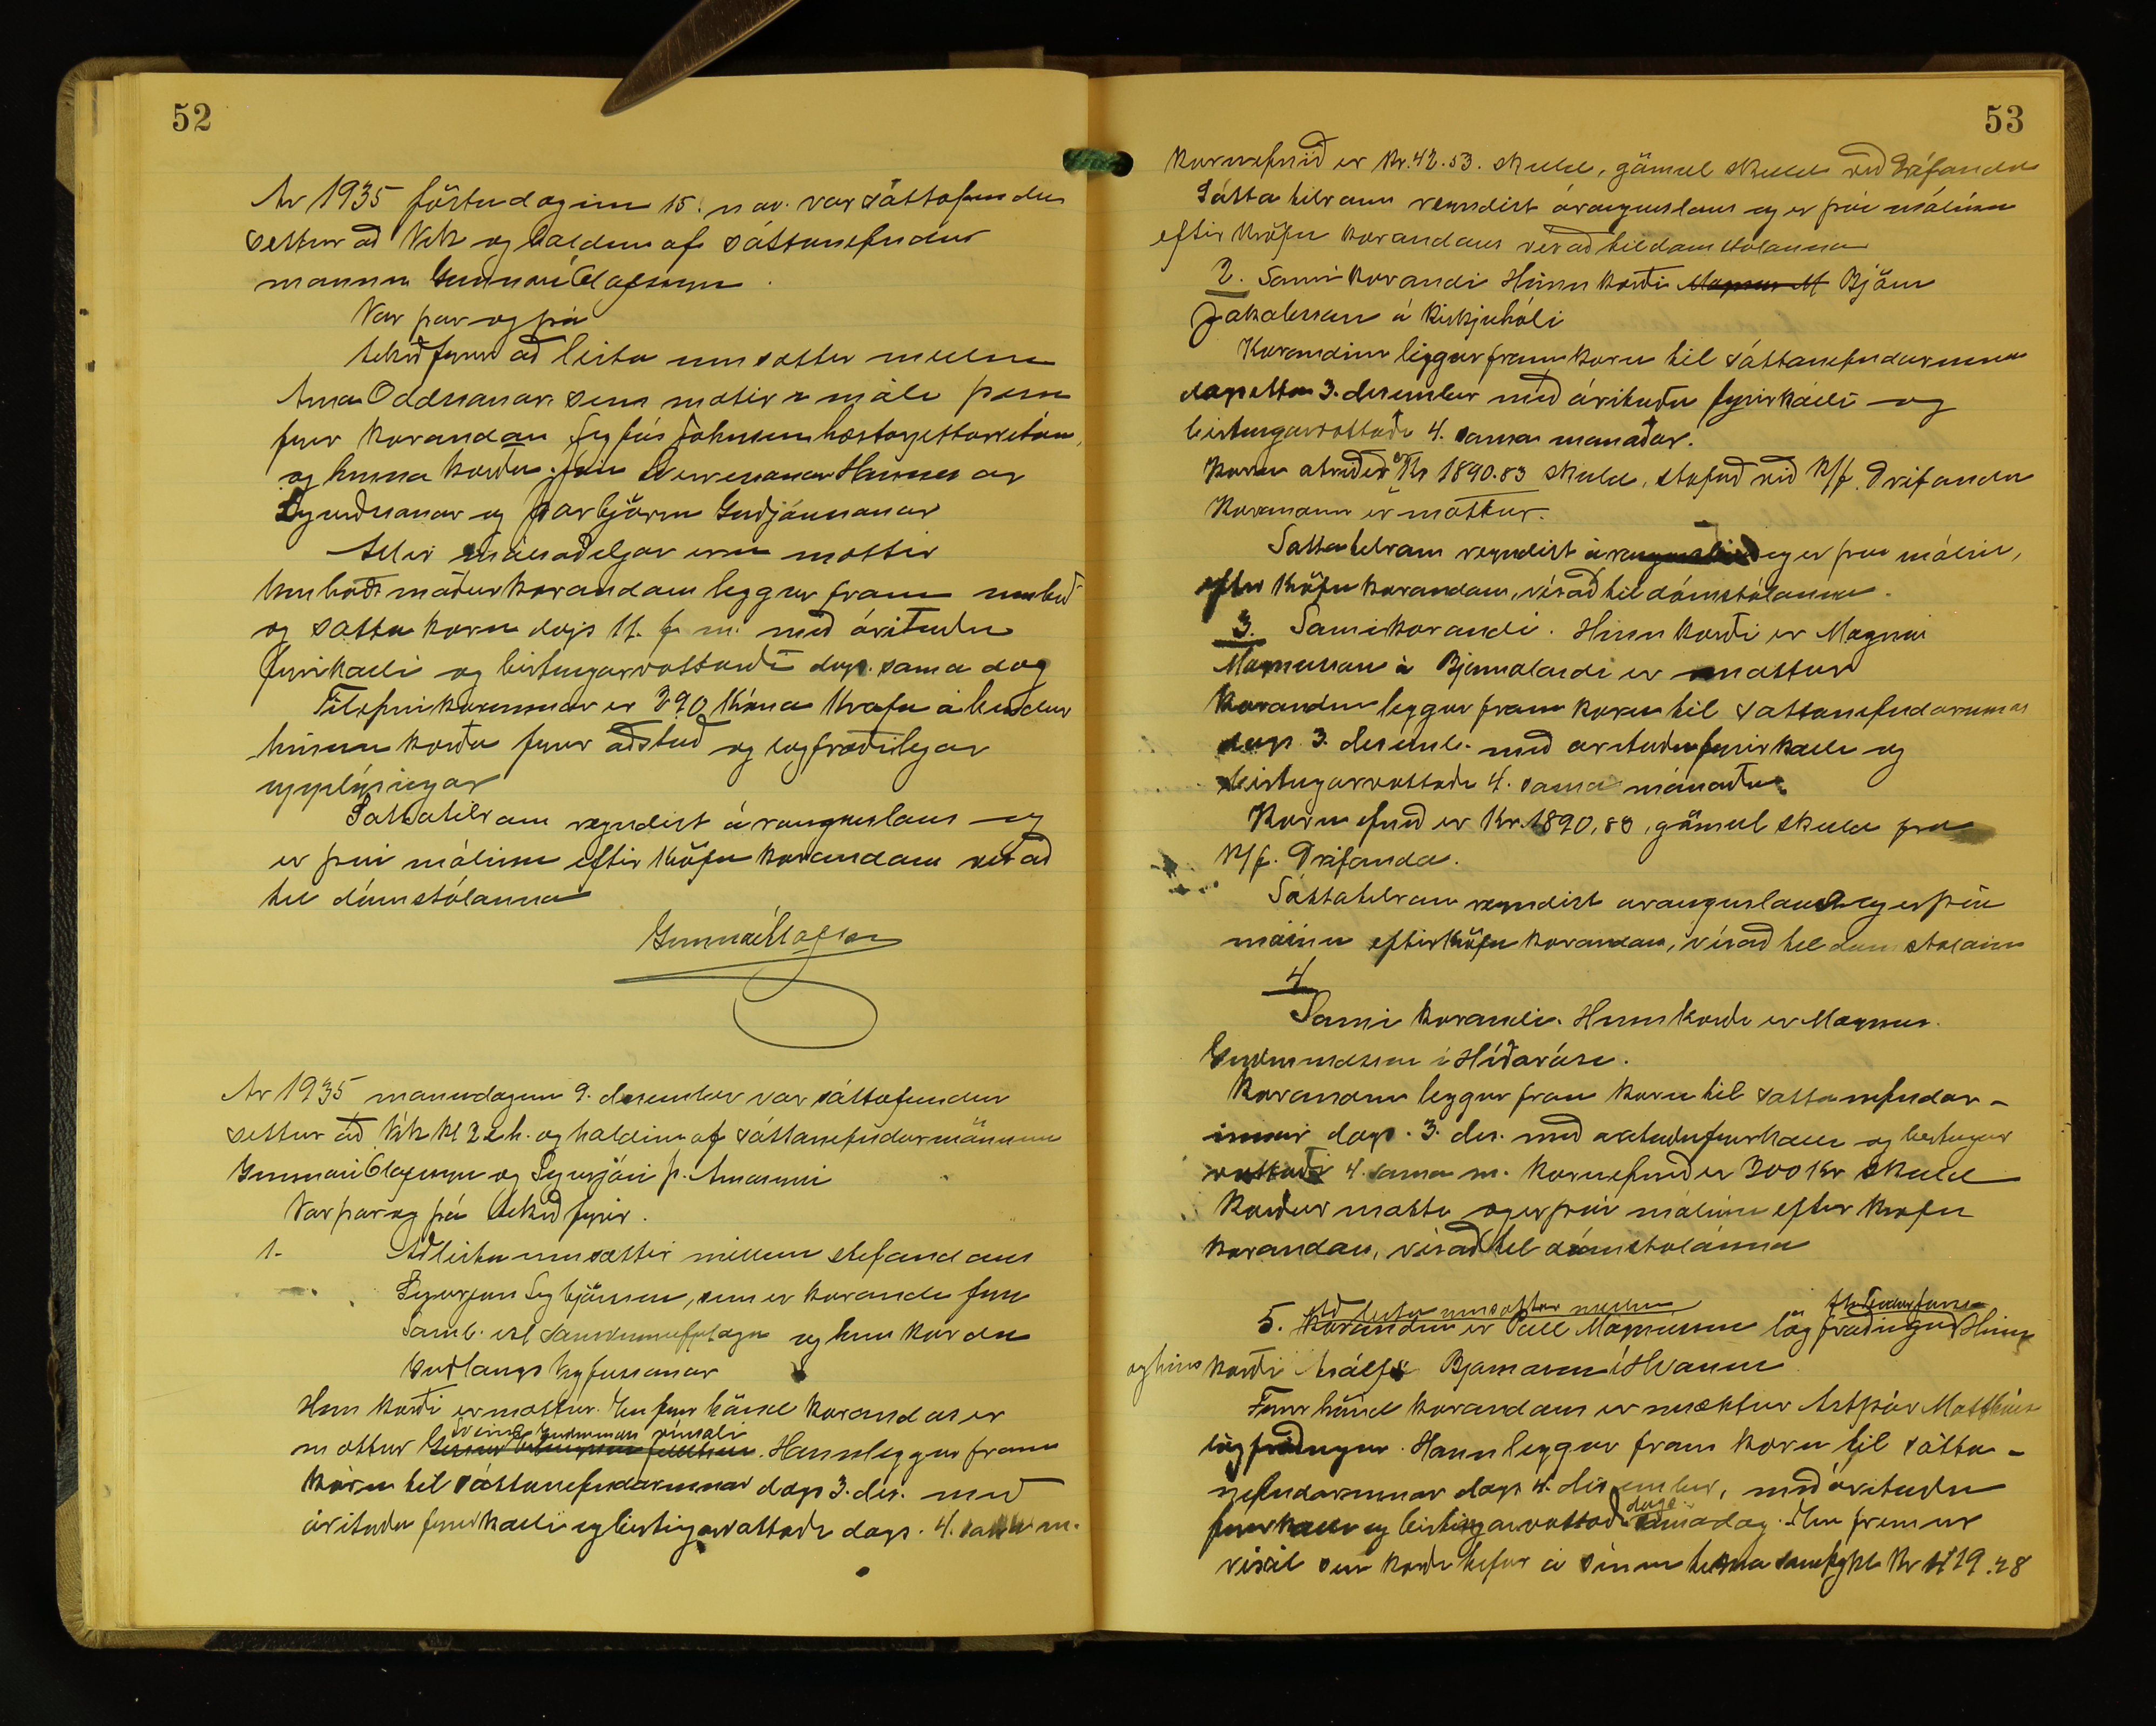 52
Ár 1935 föstudaginn 15. nóv. var sáttafundur
settur að Vík og haldinn af sáttanefndar
manni Gunnari Ólafssyni.
Var þar og þá
tekið fyrir að leita um sættir millum
Árna Oddssonar, sem mætir á máli þessu
fyrir kærandan Sigfús Johnsen hæstarjettarritara,
og hinna kærðu, Hannesar
Sigurðssonar og Þorbjörns Guðjónssonar
Allir málsaðiljar eru mættir
Umboðsmaður kærandans leggur fram umboð
og sátta kæru dags 11. þ. m. með árituðu
fyrirkalli og birtingarvottorði dags. sama dag
Tilefni kærunnar er 390 króna krafa á hendur
hinum kærðu fyrir aðstoð og lögfræðilegar
upplýsingar
Sáttatilraun reyndist árangurslaus og
er því málinu eftir kröfu kærandans vísað
til dómstólanna
Gunnar Ólafsson
Ár 1935 mánudaginn 9. desember var sáttafundur
settur að Vík kl 2 e.h. og haldinn af sáttanefndarmönnum
Gunnari Ólafssyni og Sigurjóni Þ. Árnasyni
Var þar og þá tekið fyrir.
1. Að leita um sættir millum stefnandans
Sigurjón Sigbjörnsson, sem er kærandi fyrir
Samb. ísl samvinnufjelaga og hins kærða
Guðlaugs Vigfússonar
Hinn kærði er mættur. En fyrir hönd kærandas er
Sveinn Guðmundss símali
mættur. Hann leggur fram
kæru til sáttanefndarinnar dags 3. des. með
árituðu fyrirkalli og birtingarvottorði dags. 4. sama m.
53
Kæruefnið er kr. 42.53. skuld, gömul skuld við Drífanda
Sátta tilraun reyndist árangurslaus og er því málinu
eftir kröfu kærandans vísað til dómstólanna
2. Sami kærandi Hinn kærði Magnus M Björn
Jakobsson á Kirkjuhóli
Kærandinn leggur fram kæru til sáttanefndarinnar
dagsetta 3. desember með árituðu fyrirkalli og
birtingarvottorði 4. sama mánaðar.
Kæru atriðið er Kr 1890.83 skuld, stofnuð við K/f. Drífanda
Kærandinn er mættur.
Sáttatilraun reyndist árangurslaus og er því málinu,
eftir kröfu kærandans, vísað til dómstólanna.
3. Sami kærandi. Hinn kærði er Magnús
Magnússon á Bjarmalandi er mættur
Kærandinn leggur fram kæru til sáttanefndarinnar
dags 3. desemb. með árituðu fyrirkalli og
birtingarvottorði 4. sama mánaðar.
Kæru efnið er Kr. 1890,83, gömul skuld frá
K/f. Drífanda.
Sáttatilraun reyndist árangurslaus og er því
málinu eftir kröfu kærandans, vísað til dómstólanna
4
Sami kærandi. Hinn kærði er Magnús
Guðmundsson í Hlíðarási.
Kærandinn leggur fram kæru til sáttanefndar-
innar dags. 3. des. með árituðu fyrirkalli og birtingar
vottorði 4. sama m. Kæruefnið er 300 Kr skuld
Kærður mætti og er því málinu eftir kröfu
kærandans, vísað til dómstólanna
Að leita um sættir millum
5. Kærandinn er Páll Magnússon lögfræðingur Hinn
og hins kærði Ásólfs Bjarnason í Hvammi.
Fyrir hönd kærandans er mættur Ástþór Matthías
lögfræðingur. Hann leggur fram kæru til sátta-
nefndarinnar dags 4. desember, með árituðu
fyrirkalli og birtingarvottorði dags. sama dag. Enn fremur
víxil sem kærði hefur á sínum tíma samþykt Kr 1129.28